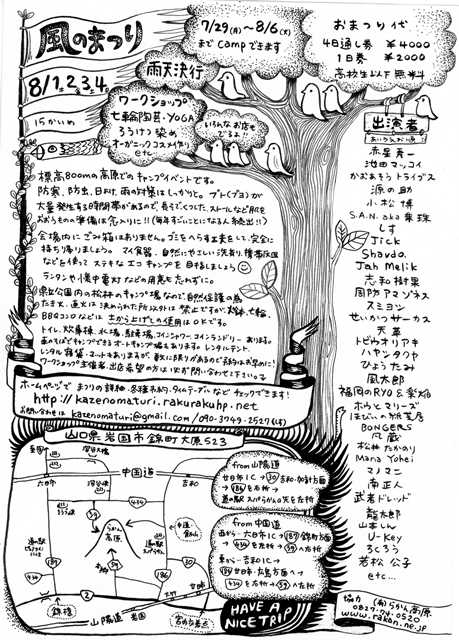 風のまつり
8/1.2.3.4.
15かいめ
7/29(月)〜8/6(火)
まで Campできます
雨天決行
おまつり代
4日通し券 ¥4000
1日券 ¥2000
高校生以下無料
ワークショップ
七輪陶芸・YOGA
ろうけつ染め
オーガニックコスメ作り
etc…
いろんなお店も
でるよ!
標高800mの高原でのキャンプイベントです。
防寒、防虫、日よけ、雨の対策はしっかりと。ブト(ブヨ)が
大量発生する時間帯があるので、長そで、
会場内にごみ箱はありません。ゴミをへらす工夫をして、完全に
持ち帰りましょう。マイ食器、自然にやさしい洗剤、携帯灰皿
などを使って ステキな エコキャンプを目指しましょう
ランタンや懐中電灯などの用意も忘れずに。
県立公園内の松林のキャンプ場なので自然保護の為
たき火、直火は決められた所以外は禁止ですが、
BBQコンロなどは 土から上げての使用はOKです。
トイレ、炊事棟、水場、駐車場、コインシャワー、コインランドリーあります。
オートキャンプ場もあります。レンタルテント、
レンタル寝袋・マットもありますが、数に限りがあるので予約はお早めに!
ワークショップ主催者、出店希望の方は 問い合わせて下さい。
ホームページで まつりの詳細・各種予約・タイムテーブルなど チェックできます!
http://kazenomaturi.rakurakuhp.net
お問い合わせは kazenomaturi@gmail.com/090-3749-2527
出演者
あいうえお順
赤星秀一
池田マッコイ
かむあそうトライブス
源の助
小松博
S.A.N. aka 東珠
しず
Jick
Shavda.
Jah Melik
志和樹果
周防アマゾネス
スミヨシ
せいかつサーカス
天草
トビウオリアキ
ハヤシタクヤ
ひょうたみ
風太郎
福岡のRYO &
ホウとマリーズ
BONGERS
松神たかのり
Mana Yohei
マノマニ
南正人
武者ドレッド
龍太郎
山本しん
U-Key
ろくろう
若松 公子
etc…
山口県岩国市錦町大原523
中国道
六日市
吉和
434
186
187
らかん
高原
錦橋
2
山陽道
岩国
廿日市
from 山陽道
廿日市IC→30 吉和・加計方面
→186 を左折→
道の駅 スパらかんの先を左折
from 中国道
西から…六日市IC→187 錦町方面
→434 を左折→59 へ右折
東から…吉和IC→
186 廿日市・広島方面へ→
434 を右折→59 へ左折
HAVE A
NICE TRIP
協力 (有)らかん高原
0827-74-0520
www.rakan.ne.jp